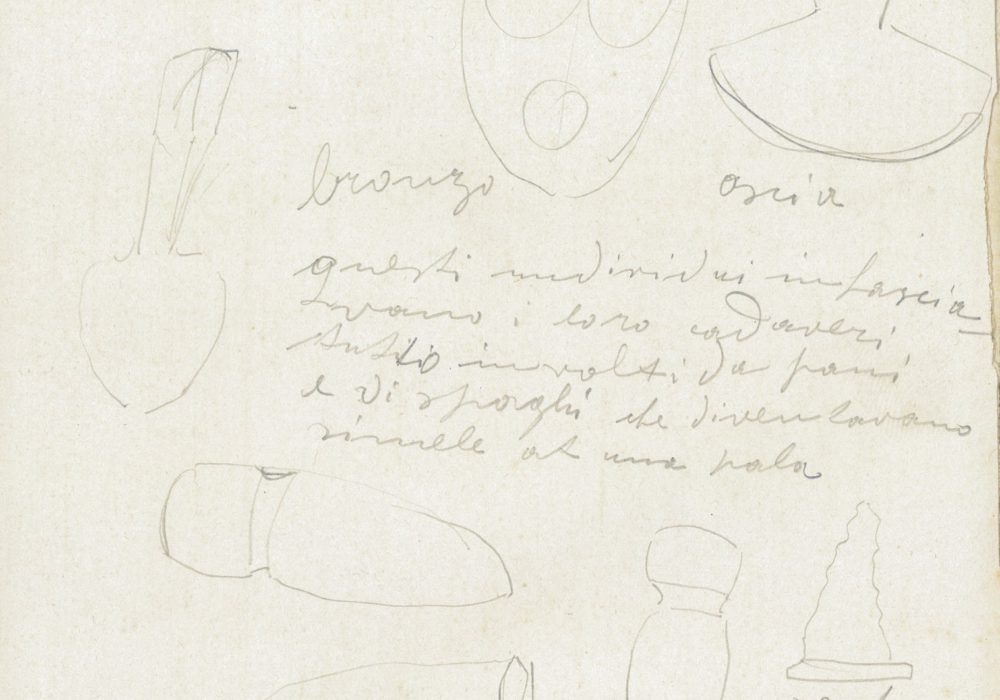 bronzo
ascia
questi individui infascia-
vano i loro cadaveri
tutti involti da pani
e di spaghi che diventavano
simele at una pala